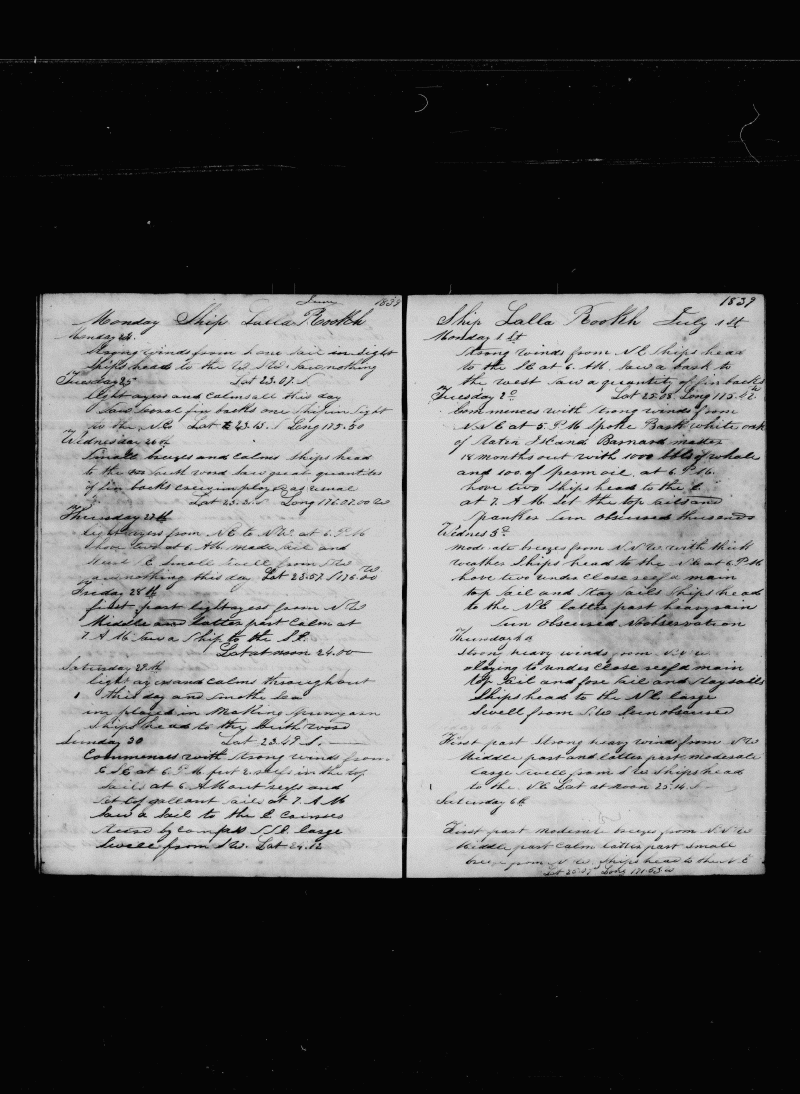 June 1839
Monday Ship Lalla Rookh
Monday 24
Strong winds from one sail in sight
Ships head to the W. Saw nothing
Tuesday 25 Lat 23.07. S
light ayers and calms all this day
Saw fin backs one ship in sight
to the NE Lat 23.45. S Long 175.50
Wednesday 26th
Small breezes and Calms Ships head
to the South word Saw great quantites
of fin backs crew employed as usual
Lat 23.3. S Long 176.07.00 W
Thursday 27th
light ayers from NE to NW. at 6. P M
hove two at 6 AM made sail and
E Small Swell from SW
Saw nothing this day Lat 23.57. S 175.00 W
Friday 28th
first part light ayers from N W
Middle and latter part Calm at
7. A M. Saw a Ship to the S.E.
Lat at noon 24.00
Saturday 29th
light ayers and Calms throughout
this day and Smothe Sea
imployed in Making Spunyarn
Ships head to the South word
Sunday 30 Lat 23.49 S.
Commences with Strong winds from
E S E at 6. P M put 2 reefs in the top
Sails at 6. A M out reefs and
Set top gallant Sails at 7. A M
Saw a Sail to the E
by compass S.S.E. large
Swell from SW. Lat 24.12
1839
Ship Lalla Rookh July 1st
Monday 1st
Strong winds from N E Ships head
to the SE at 6. AM. Saw a bark to
the west Saw a quantity of fin backs
Tuesday 2d Lat 25.08. Long 175.12 W
Commences with strong winds from
N N E at 5. P M Spoke Bark white oak
of Staten Island Barnard master
18 months out with 1000 bbls of whale
and 100 of Sperm oil, at 6. P M.
hove two Ships head to the E
at 7. A M Set the top Sails and
Spanker Sun Obscured
Wednes 3d
moderate breezes from N.N W. with thick
weather Ships head to the NE at 6 P M
hove two under Close reefd main
top Sail and Stay Sails Ships head
to the NE latter part heavy rain
Sun Obscured No observation
Thursday 4
Strong heavy winds from N.N W
laying to under Close reefd main
top Sail and fore Sail and Staysails
Ships head to the NE large
Swell from SW Sun obscured
First part Strong heavy winds from NW
Middle part and latter part moderate
Large Swell from S W Ships head
to the NE Lat at Noon 25.14. S
Saturday 6th
First part moderate breezes from N.N W
Middle part Calm latter part Small
breeze from N W. Ships head to the N. E
Long 171.53 W